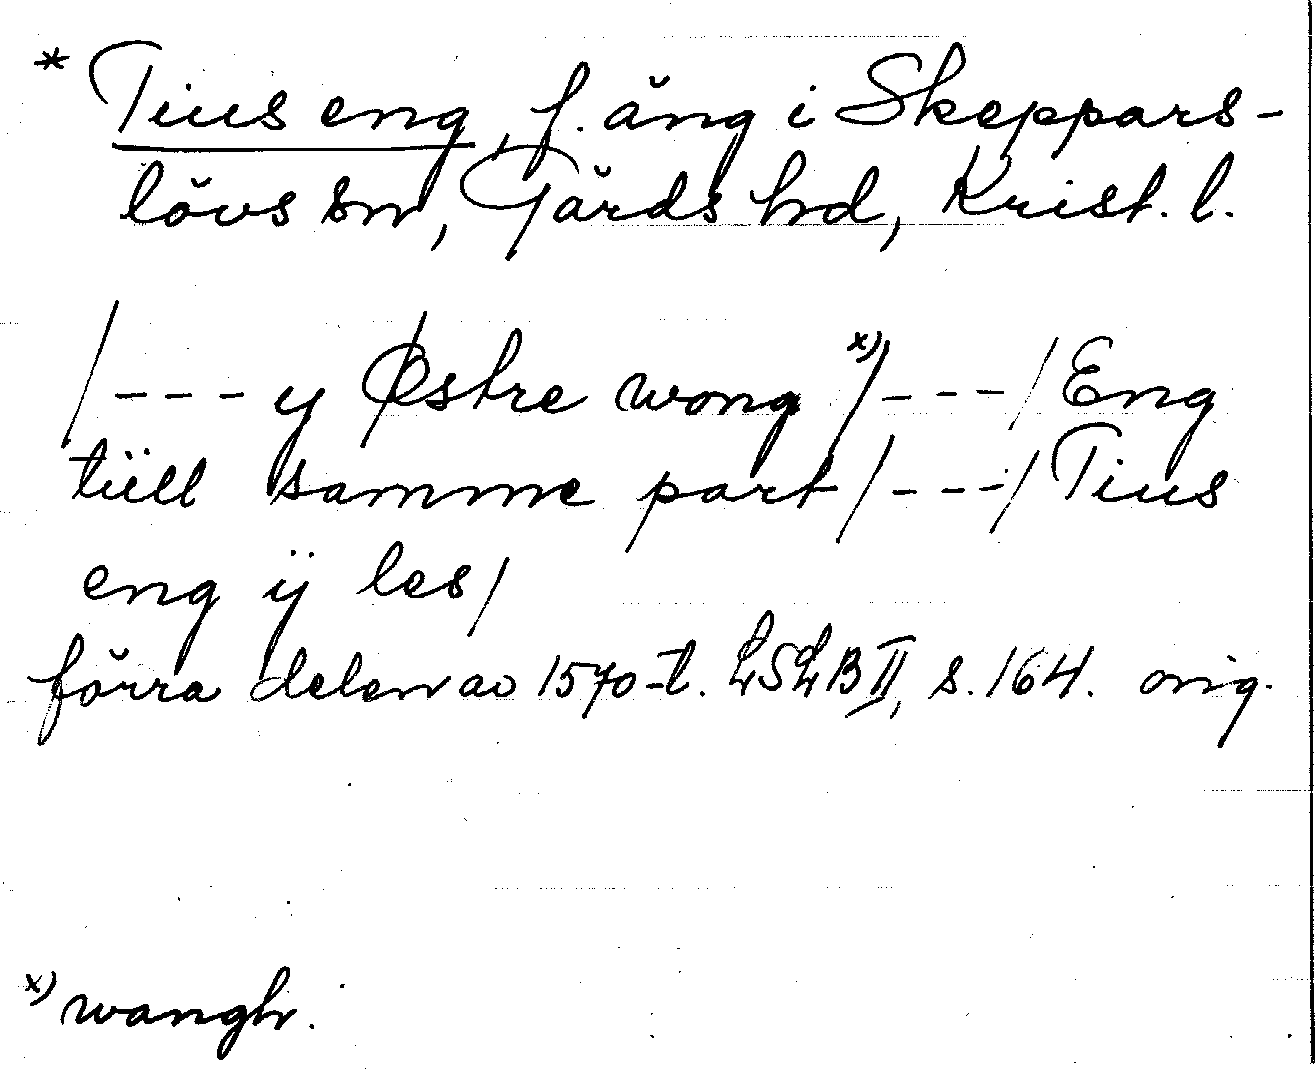 * Tius eng, f. äng i Skeppars-
lövs sn, Gärds hd, Krist. l.
/--- y Østre wong x) /---/ Eng
tiill samme part /---/ Tius
eng ij les/
förra delen av 1570-t. LSLB II, s. 164. orig.
x) wangh.